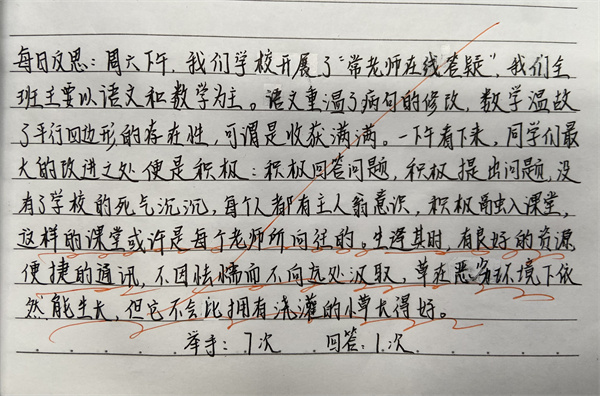 每日反思：周六下午，我们学校开展了“常老师在线答疑”，我们全
班主要以语文和数学为主。语文重温了病句的修改，数学温故
了平行四边形的存在性，可谓是收获满满。一下午看下来，同学们最
大的改进之处便是积极：积极回答问题，积极提出问题，没
有了学校的死气沉沉，每个人都有主人翁意识，积极融入课堂，
这样的课堂或许是每个老师所向往的。生逢其时，有良好的资源
便捷的通讯，不因怯懦而不向远处汲取，草在恶劣环境下依
然能生长，但它不会比拥有浇灌的小草长得好。
举手：7次 回答：1次